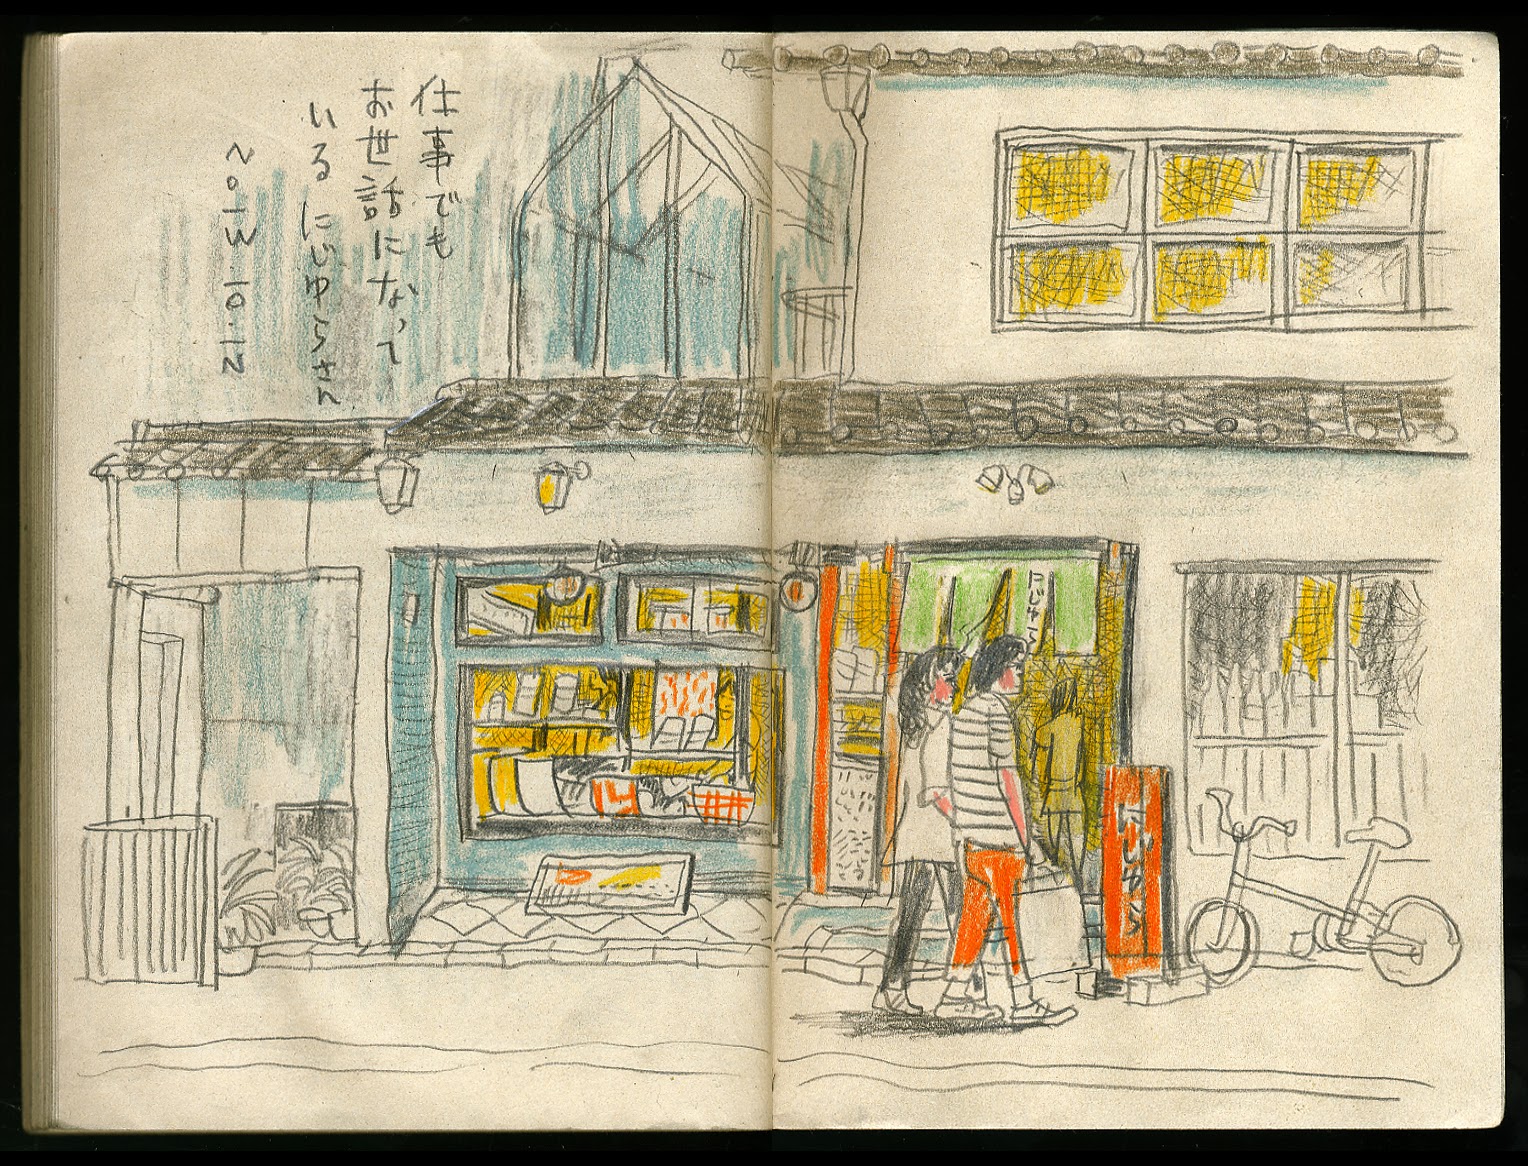 仕事でも
お世話になって
いる にじゆらさん
2013.10.12
にじゆら
にじゆら